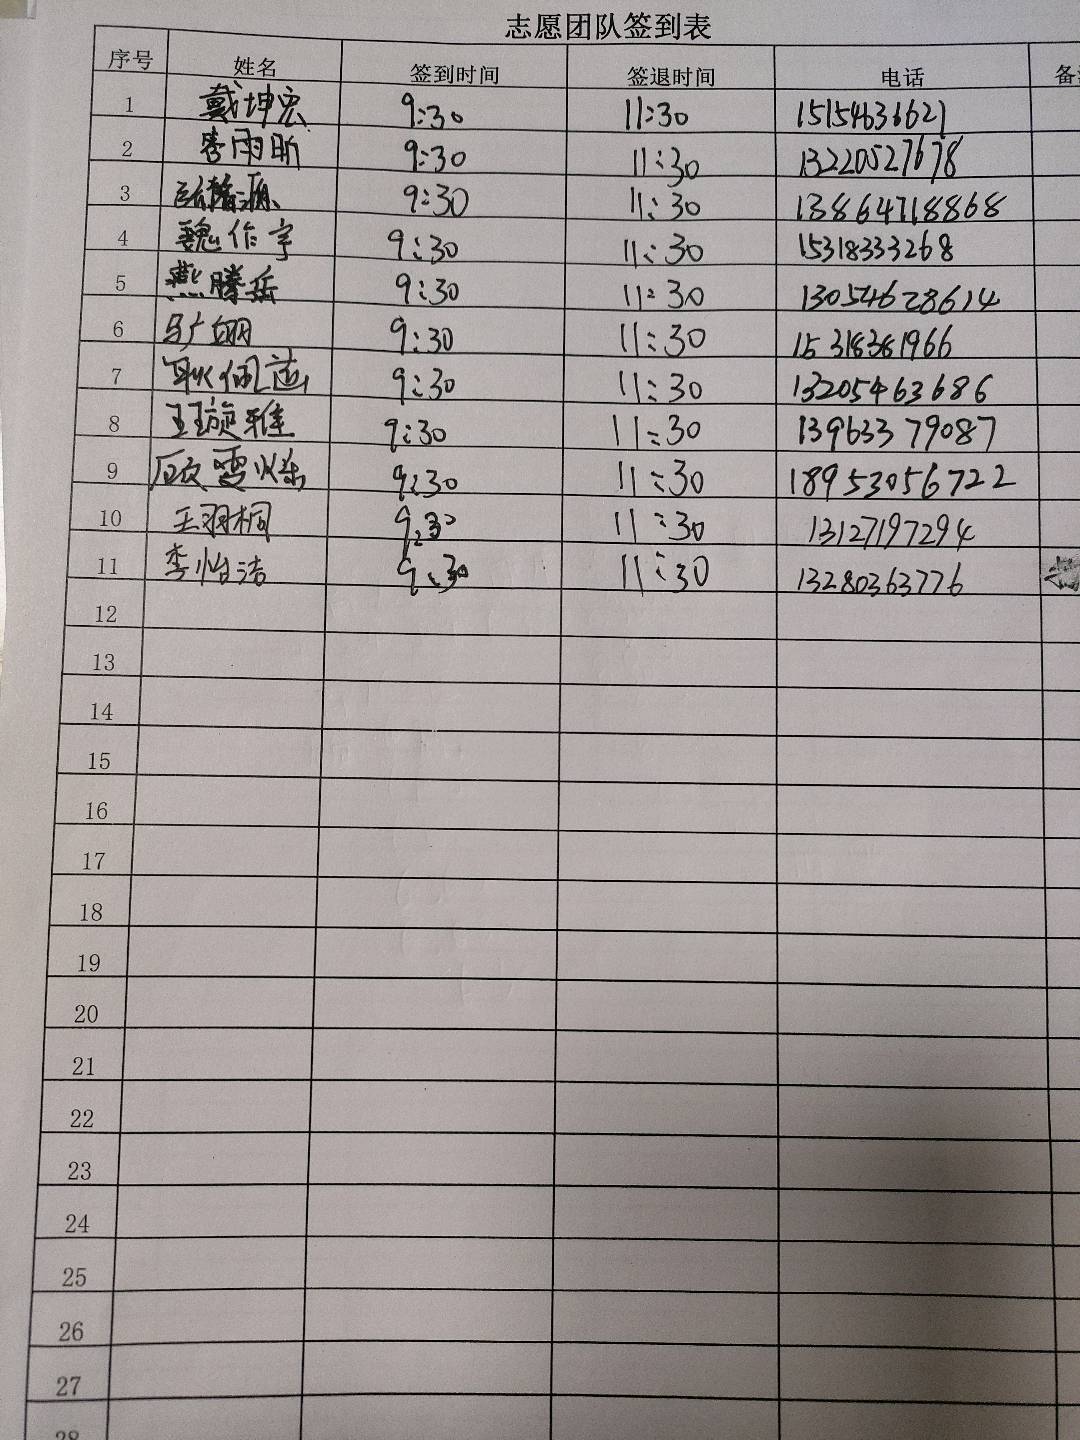 志愿团队签到表
序号 姓名 签到时间 签退时间 电话 备
1 戴坤宏 9:30 11:30 15154631621
2 李雨昕 9:30 11:30 13220527678
3 9:30 11:30 13864718868
4 魏作宇 9:30 11:30 15318333268
5 燕腾岳 9:30 11:30 13054628614
6 马广翊 9:30 11:30 15318381966
7 耿佩 9:30 11:30 13205463686
8 王璇雅 9:30 11:30 13963379087
9 9:30 11:30 18953056722
10 王羽桐 9:30 11:30 13127197294
11 李怡洁 9:30 11:30 13280363776
12
13
14
15
16
17
18
19
20
21
22
23
24
25
26
27
28